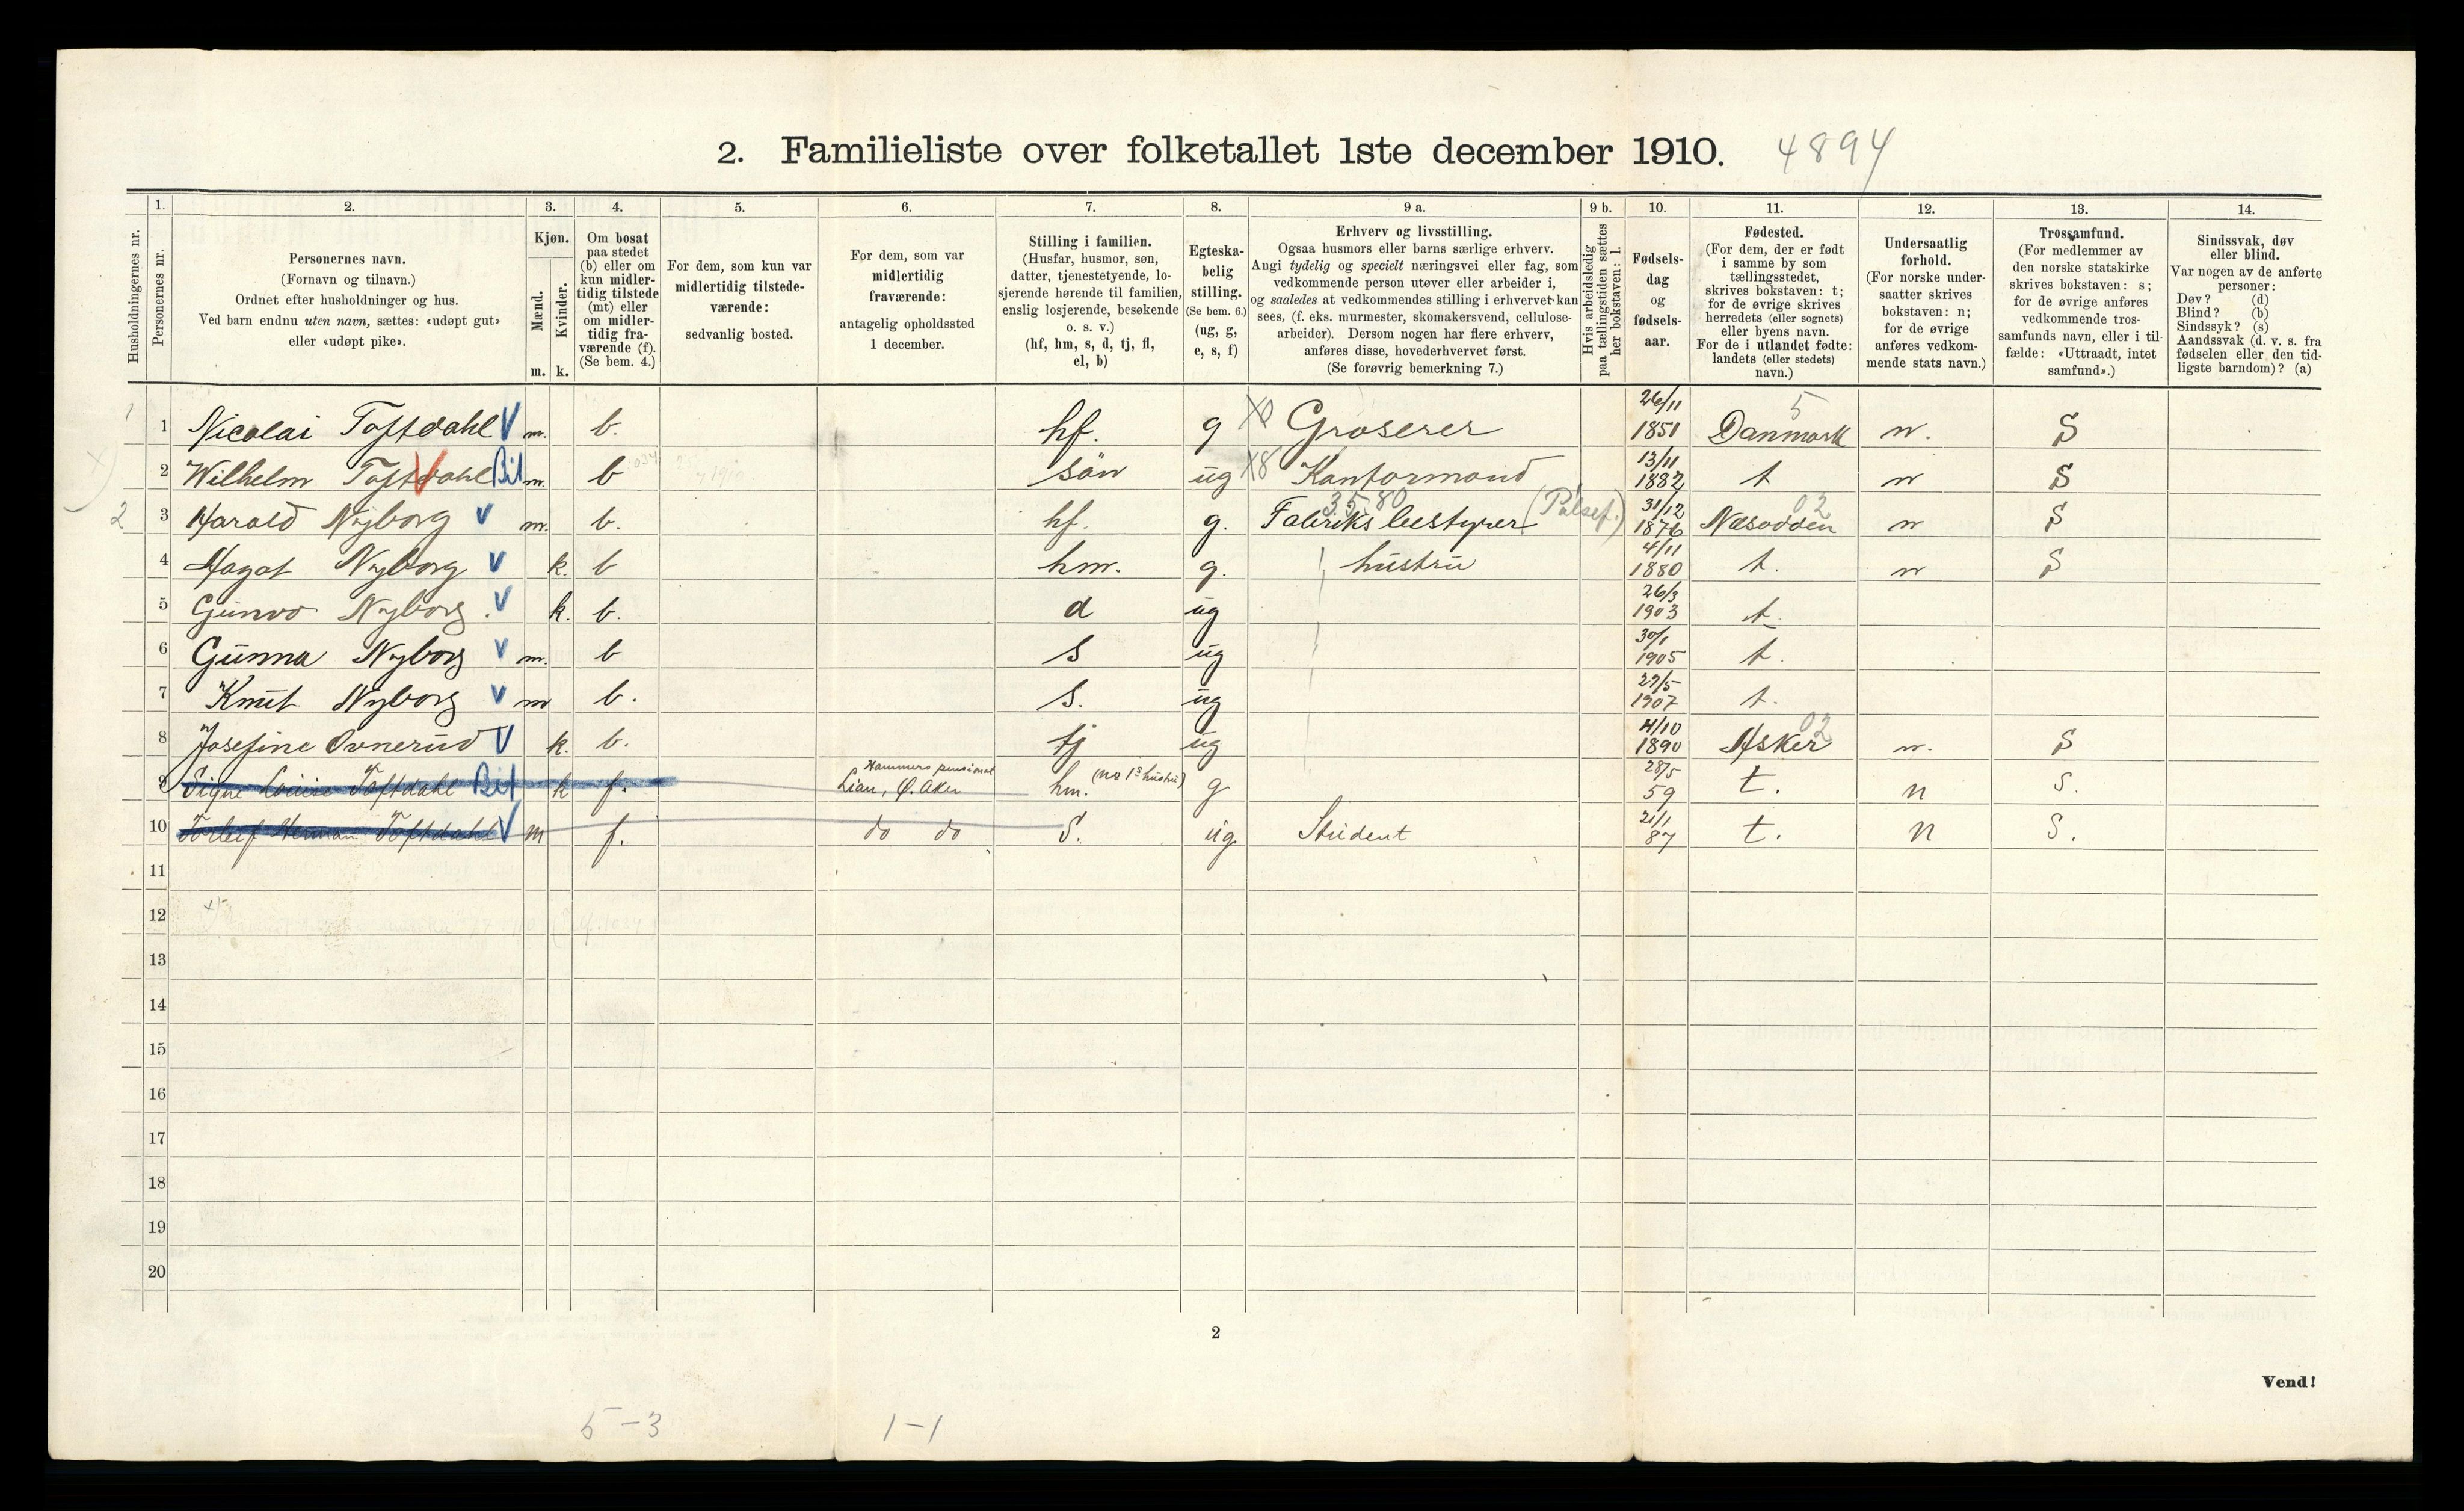 2. Familieliste over folketallet 1ste december 1910. 4894
Husholdningernes nr.
1.
Personernes nr.
2.
Personernes navn.
(Fornavn og tilnavn.)
Ordnet efter husholdninger og hus.
Ved barn endnu uten navn, sættes: «udøpt gut»
eller «udøpt pike».
3.
Kjøn.
Mænd.
Kvinder.
m. k.
4.
Om bosat
paa stedet
(b) eller om
kun midler-
tidig tilstede
(mt) eller
om midler-
tidig fra-
værende (f).
(Se bem. 4.)
5.
For dem, som kun var
midlertidig tilstede-
værende:
sedvanlig bosted.
6.
For dem, som var
midlertidig
fraværende:
antagelig opholdssted
1 december.
7.
Stilling i familien.
(Husfar, husmor, søn,
datter, tjenestetyende, lo-
sjerende hørende til familien,
enslig losjerende, besøkende
o. s. v.)
(hf, hm, s, d, tj, fl,
el, b)
8.
Egteska-
belig
stilling.
(Se bem. 6.)
(ug, g,
e, s, f)
9 a.
Erhverv og livsstilling.
Ogsaa husmors eller barns særlige erhverv.
Angi tydelig og specielt næringsvei eller fag, som
vedkommende person utøver eller arbeider i,
og saaledes at vedkommendes stilling i erhvervet kan
sees, (f. eks. murmester, skomakersvend, cellulose-
arbeider). Dersom nogen har flere erhverv,
anføres disse, hovederhvervet først.
(Se forøvrig bemerkning 7.)
9 b.
Hvis arbeidsledig
paa tællingstiden sættes
her bokstaven: l.
10.
Fødsels-
dag
og
fødsels-
aar.
11.
Fødested.
(For dem, der er født
i samme by som
tællingsstedet,
skrives bokstaven: t;
for de øvrige skrives
herredets (eller sognets)
eller byens navn.
For de i utlandet fødte:
landets (eller stedets)
navn.)
12.
Undersaatlig
forhold.
(For norske under-
saatter skrives
bokstaven: n;
for de øvrige
anføres vedkom-
mende stats navn.)
13.
Trossamfund.
(For medlemmer av
den norske statskirke
skrives bokstaven: s;
for de øvrige anføres
vedkommende tros-
samfunds navn, eller i til-
fælde: «Uttraadt, intet
samfund».)
14.
Sindssvak, døv
eller blind.
Var nogen av de anførte
personer:
Døv? (d)
Blind? (b)
Sindssyk? (s)
Aandssvak (d. v. s. fra
fødselen eller den tid-
ligste barndom)? (a)
1 1 Nicolai Toftdahl V m. b. hf. g X0 Groserer 26/11 1851 5 Danmark n. S
2 Wilhelm Toftdahl V Bit m. b sön ug X8 Kontormand 13/11 1882 t n S
2 3 Harald Nyborg V m. b. hf. g. 35.80 Fabriks bestyrer (Pølsef.) 31/12 1876 02 Næsodden n S
4 Magot Nyborg V k. b hm. g. hustru 4/11 1880 t. n S
5 Gunvo Nyborg V k. b. d ug 26/3 1903 t.
6 Gunna Nyborg V m. b s ug 30/1 1905 t.
7 Knut Nyborg V m b. s. ug 29/5 1907 t.
8 Josefine Ovnerud V k. b. tj ug 4/10 1890 02 Asker n. S
9 Signe Louise Toftdahl Bit k f. Hammers pensionat Lian, Ø. Aker hm. (no 1s hustru) g 28/5 59 t. n S.
10 Torleif Herman Toftdahl V m f. do do S. ug Student 21/1 87 t. n S.
11
12
13
14
15
16
17
18
19
20
2
Vend!
5-3 1-1